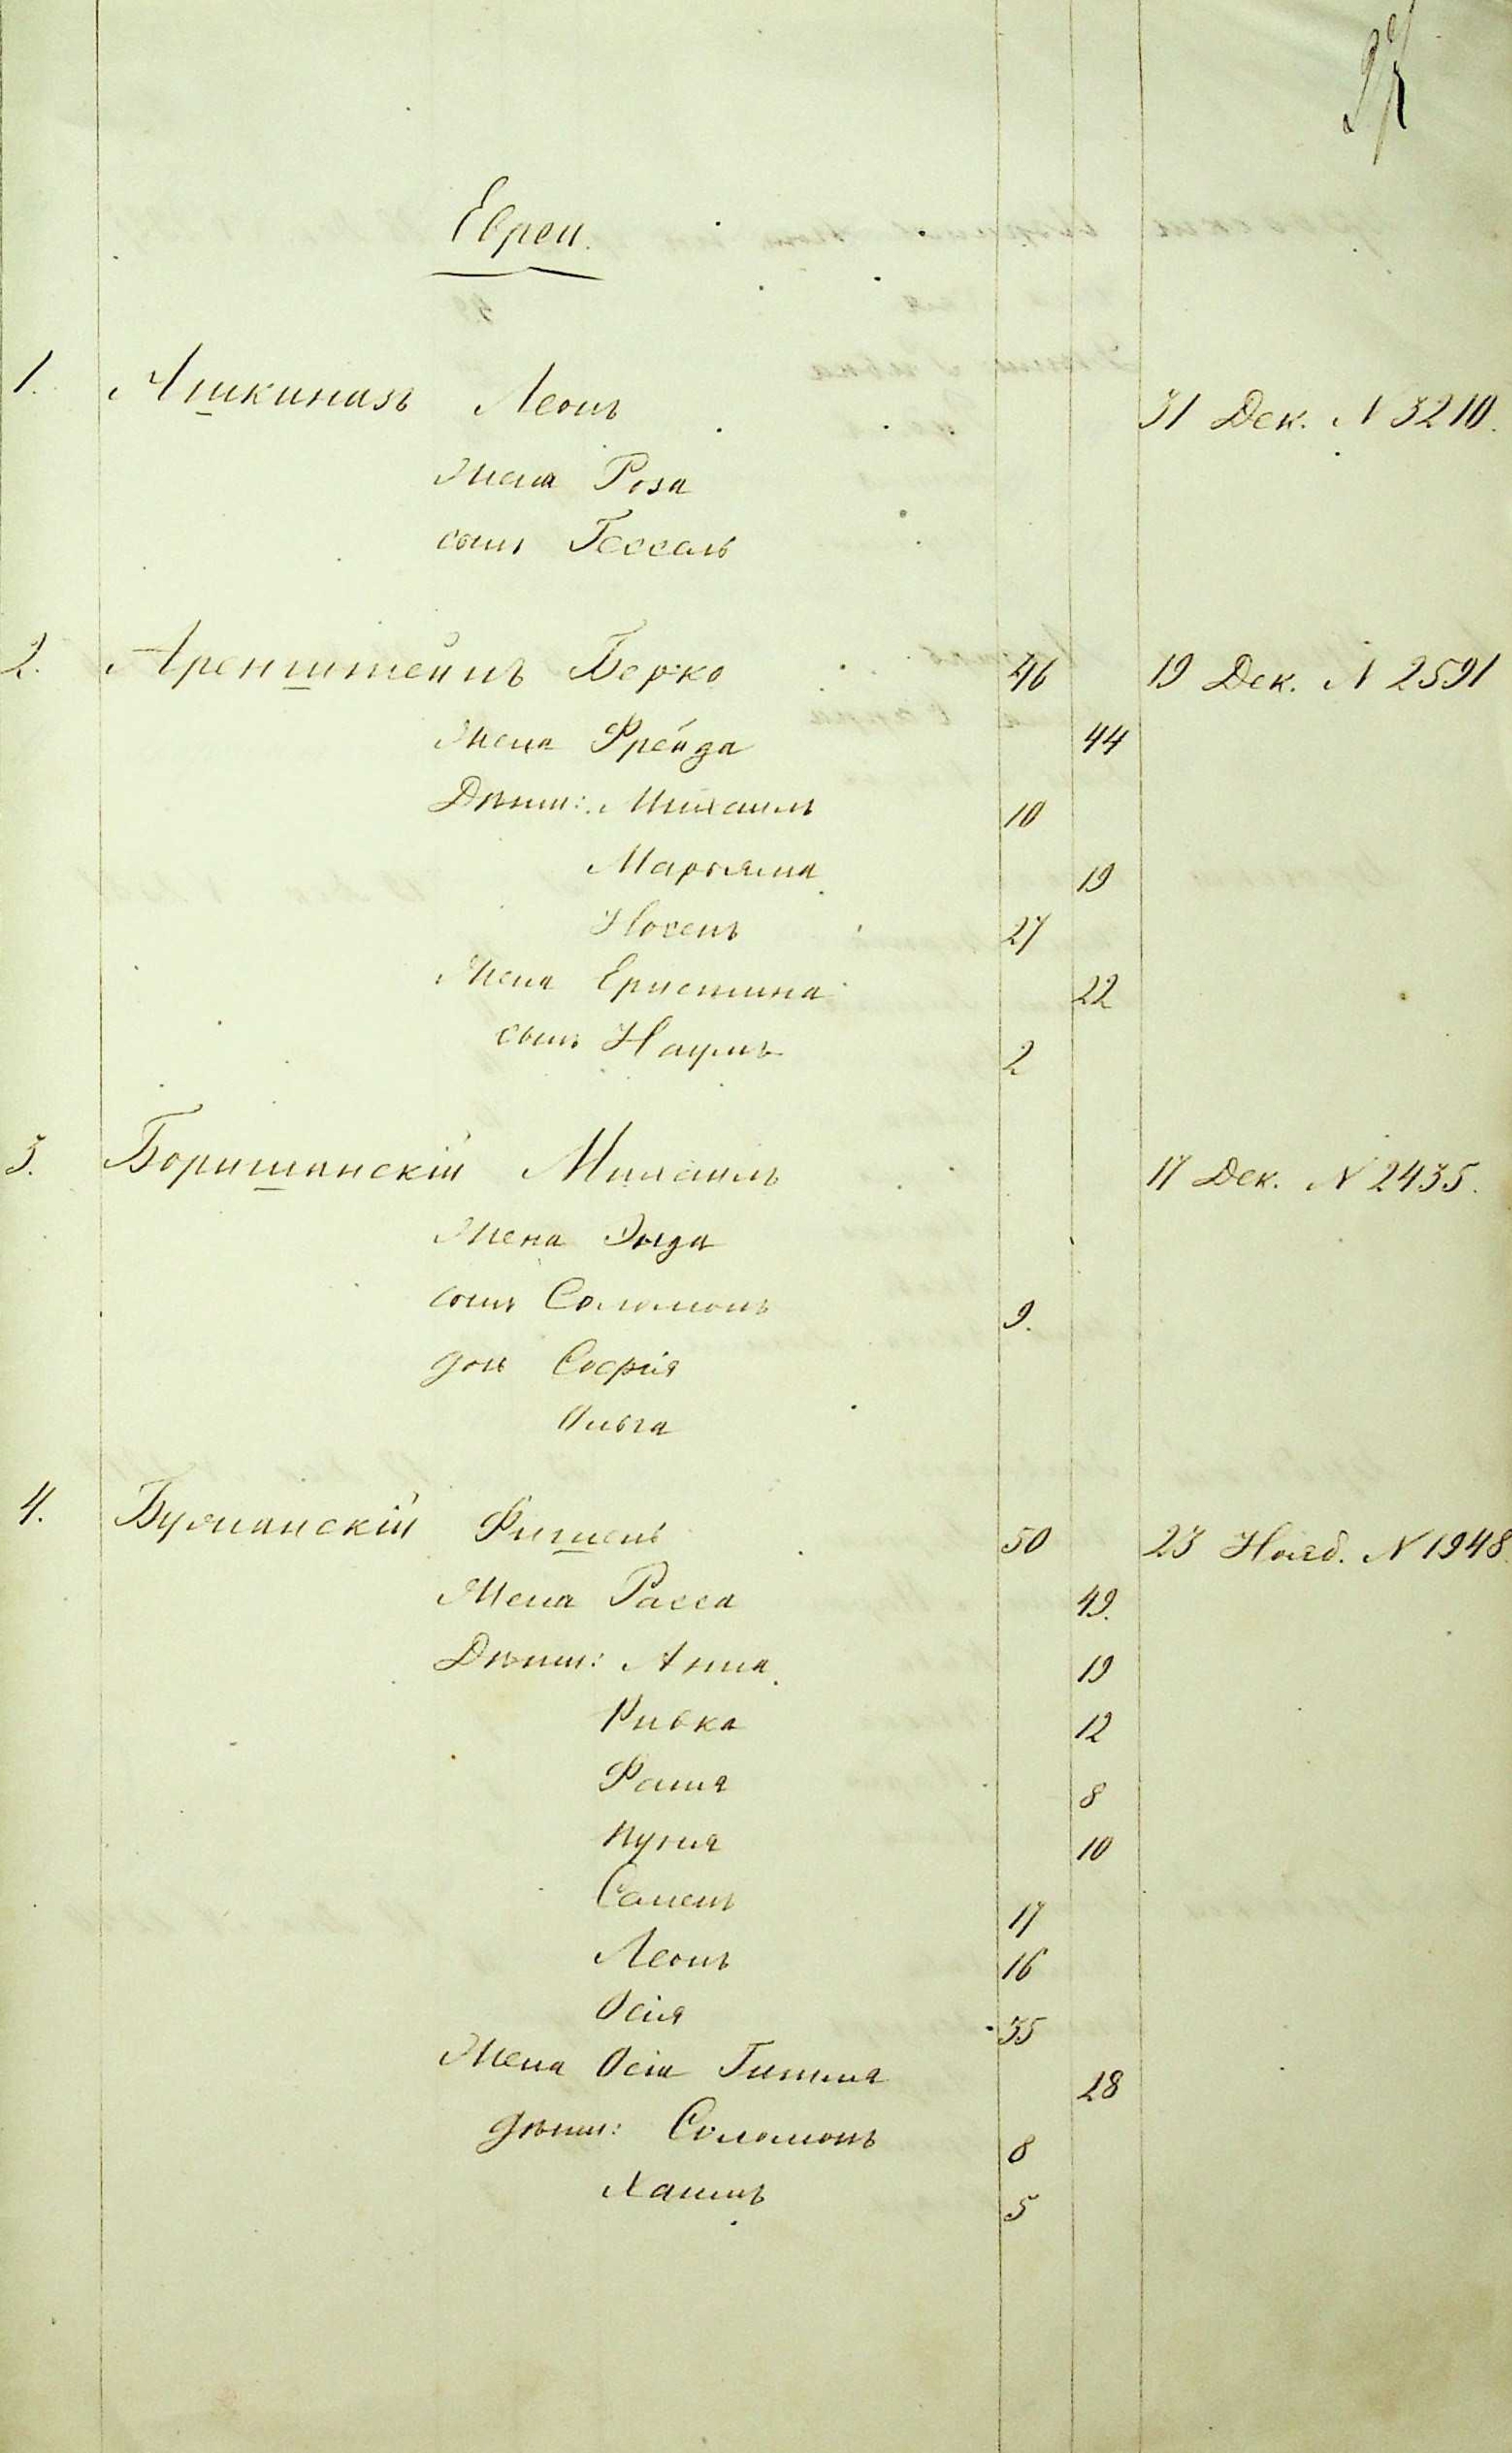 37
Евреи.
1. Ашкиназъ Леонъ 31 Дек. N 3210.
Жена Роза
сынъ Гессель
2. Аренштейнъ Берко 46 19 Дек. N 2591
Жена Фрейда 44
Дѣти: Михаилъ 10
Марьяма 19
Нохемъ 27
Жена Ернестина 22
сынъ Наумъ 2
3. Боришанскій Михаилъ 17 Дек. N 2435.
Жена Энда
сынъ Соломонъ 9.
дочь Софія
Ольга
4. Бумианскій Фишель 50 23 Нояб. N 1948
Жена Расса 49.
Дѣти: Анна 19
Ривка 12
Фаня 8
Луня 10
17
Леонъ 16
Осія 35
Жена Осіи 28
дѣти: Соломонъ 8
Хаимъ 5